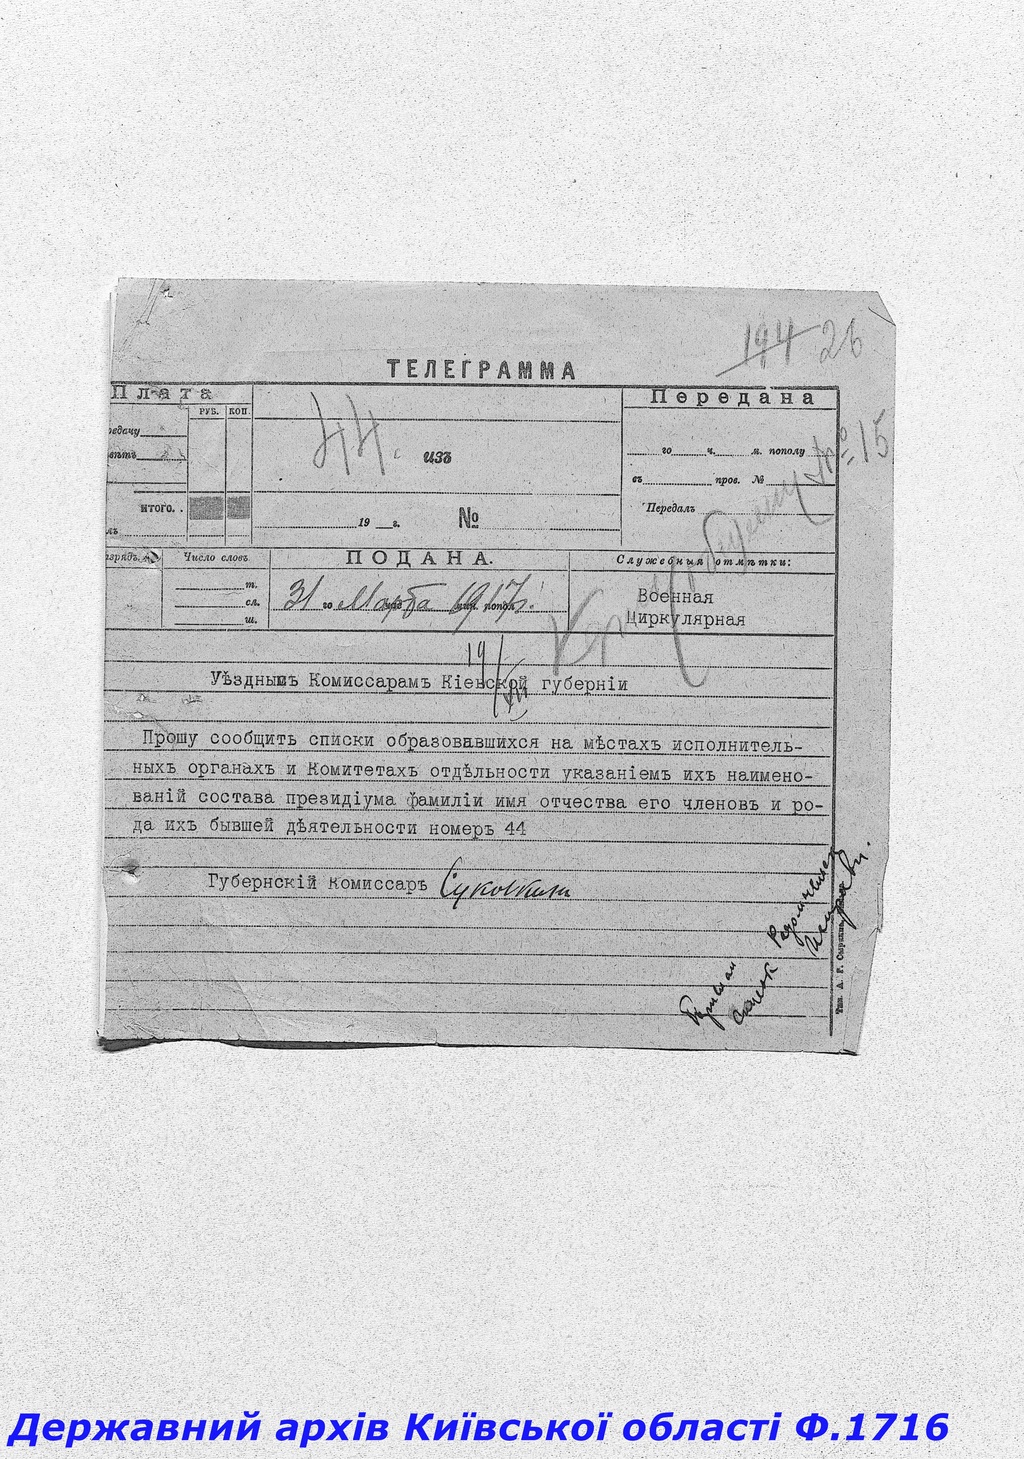 194 26
ТЕЛЕГРАММА
Плата
РУБ. КОП.
итого. .
44.
изъ
19 г. №
Передана
го ч. м. пополу
въ пров. №
Передалъ
№ 15
Число словъ
т.
сл.
ш.
ПОДАНА.
31 го Марта 1917 г.
Служебныя отмѣтки:
Военная
Циркулярная
19
Уѣзднымъ Комиссарамъ Кіевской губерніи
Прошу сообщить списки образовавшихся на мѣстахъ исполнитель-
ныхъ органахъ и Комитетахъ отдѣльности указаніемъ ихъ наимено-
ваній состава президіума фамиліи имя отчества его членовъ и ро-
да ихъ бывшей дѣятельности номеръ 44
Губернскій комиссаръ Суковкин
Тип. А. Г.
Державний архів Київської області Ф.1716